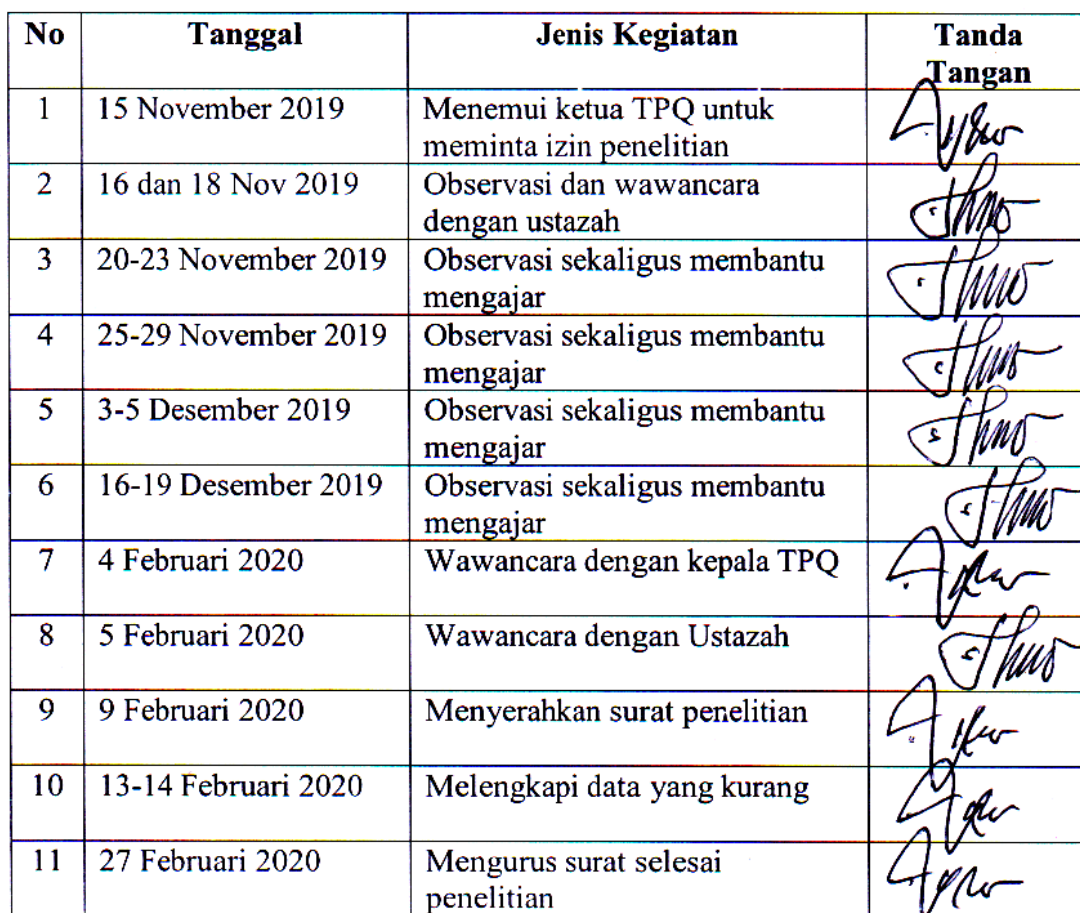 No Tanggal Jenis Kegiatan Tanda
Tangan
1 15 November 2019 Menemui ketua TPQ untuk
meminta izin penelitian
2 16 dan 18 Nov 2019 Observasi dan wawancara
dengan ustazah
3 20-23 November 2019 Observasi sekaligus membantu
mengajar
4 25-29 November 2019 Observasi sekaligus membantu
mengajar
5 3-5 Desember 2019 Observasi sekaligus membantu
mengajar
6 16-19 Desember 2019 Observasi sekaligus membantu
mengajar
7 4 Februari 2020 Wawancara dengan kepala TPQ
8 5 Februari 2020 Wawancara dengan Ustazah
9 9 Februari 2020 Menyerahkan surat penelitian
10 13-14 Februari 2020 Melengkapi data yang kurang
11 27 Februari 2020 Mengurus surat selesai
penelitian